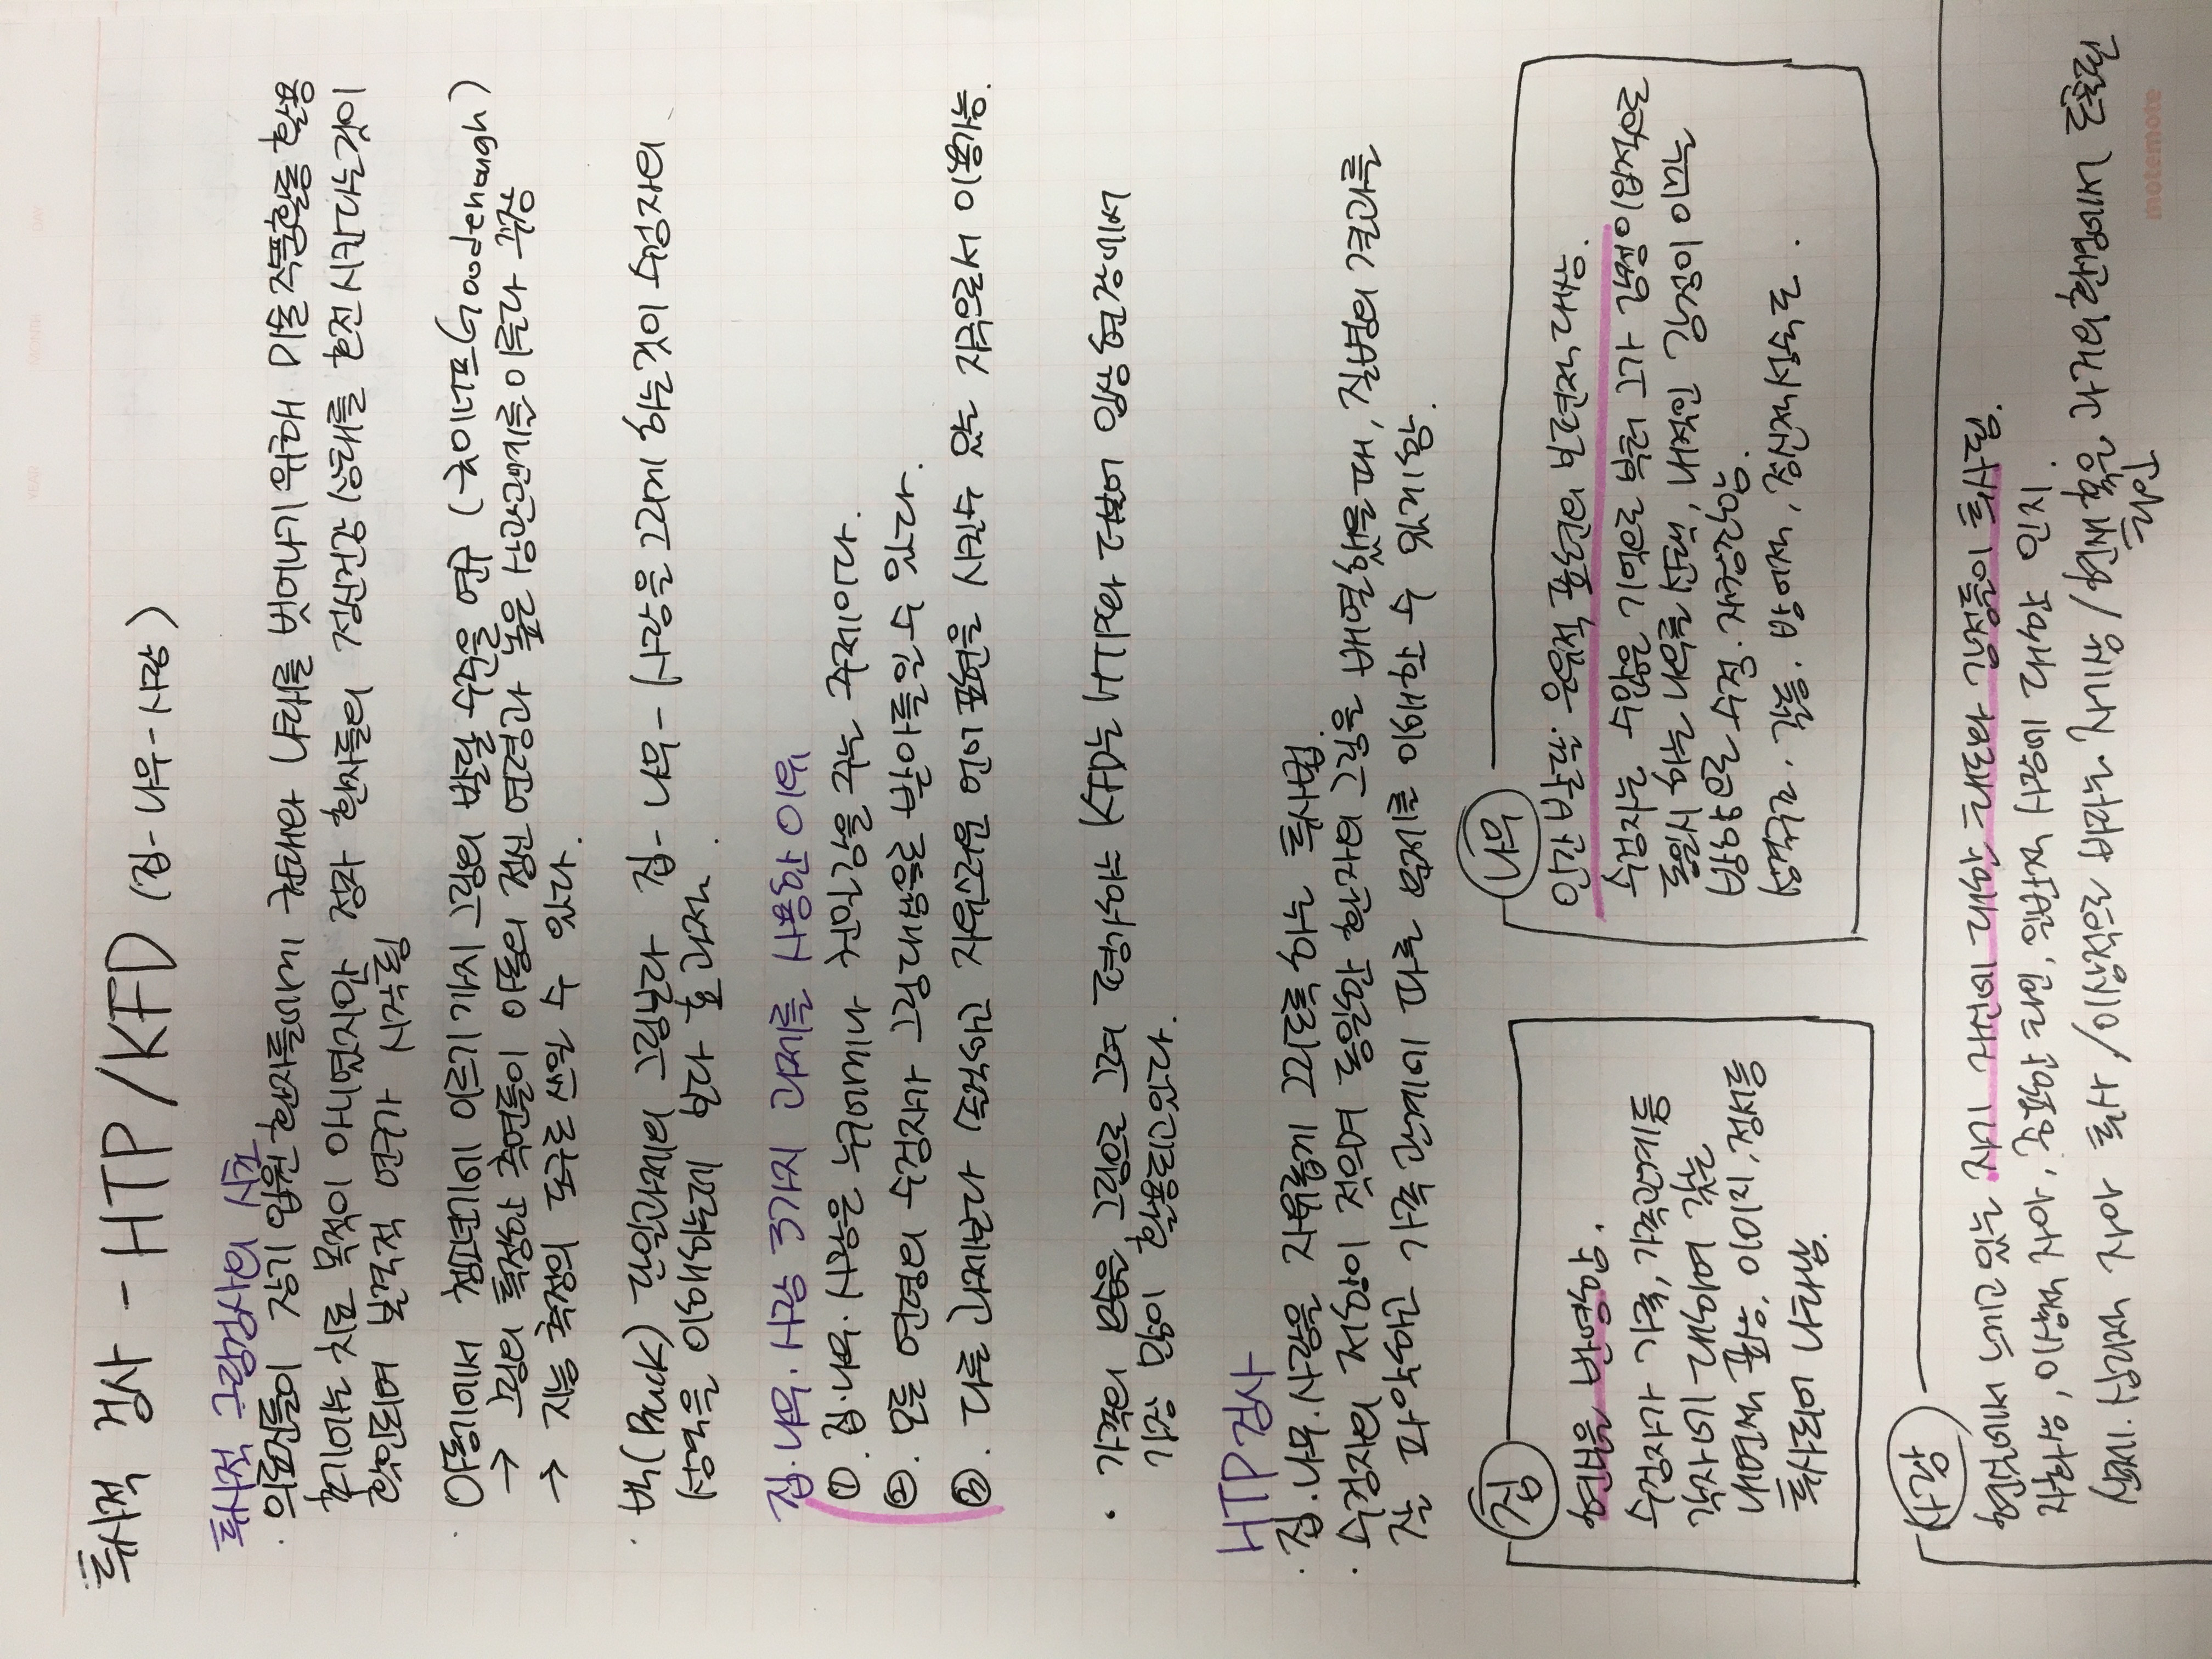 YEAR MONTH DAY
투사적 검사 - HTP/KFD (집-나무-사람)
투사적 그림검사의 시초
· 의료진들이 장기 입원환자들에게 권태와 나태를 벗어나기 위해 미술작품활동 활용
초기에는 치료 목적이 아니였지만 점차 환자들의 정신건강 상태를 호전시킨다는것이
확인되며 본격적 연구가 시작됨
· 아동기에서 청소년기에 이르기 까지 그림의 발달 수준을 연구 (굿이너프 Goodenough)
→ 그림의 특정한 측면들이 아동의 정신 연령과 높은 상관관계를 이룬다 주장
→ 지능 측정의 도구로 쓰일 수 있다.
· 벅(Buck) 단일과제의 그림보다 집-나무-사람을 그리게 하는것이 수검자의
성격을 이해하는데 보다 효과적.
집.나무.사람 3가지 과제를 사용한 이유
①. 집.나무.사람은 누구에게나 친밀감을 주는 주제이다.
②. 모든 연령의 수검자가 그림대상으로 받아들일 수 있다.
③. 다른 과제보다 솔직하고 자유스러운 언어표현을 시킬수 있는 자극으로서 이용가능.
· 가족의 모습을 그림으로 그려 평가하는 KFD는 HTP와 더불어 임상현장에서
가장 많이 활용되고있다.
HTP검사
· 집.나무.사람을 자유롭게 그리도록 하는 투사법.
· 수검자의 저항이 적으며 동일한 환자의 그림을 배열했을때, 질병의 결과를
잘 파악하고 가족관계에 따른 문제를 이해할 수 있게함.
집
현실을 반영함.
수검자가 가족, 가족관계등
각자에 대하여 갖는
내면적 표상, 이미지, 정서등
투사되어 나타남.
나무
인간발달: 은유적 표현의 보편적대상.
수검자는 수많은 기억으로 부터 그가 감정이입적으로
동일시 하는 나무를 선택, 내적인 감정이 이끄는
방향으로 수정.재창조함.
성격구조. 갈등. 방어적, 정신적성숙도.
사람
현실에서 느끼고 있는 자기 자신에 대한 태도와 감정들이 투사됨.
자화상, 이상적 자아, 중요한 타인, 일반적 사람에 대한 인지.
신체.심리적 자아 투사 / 이상적으로 바라는 자기상 / 현재 혹은 과거의환경에서 도출된
타인
motemote